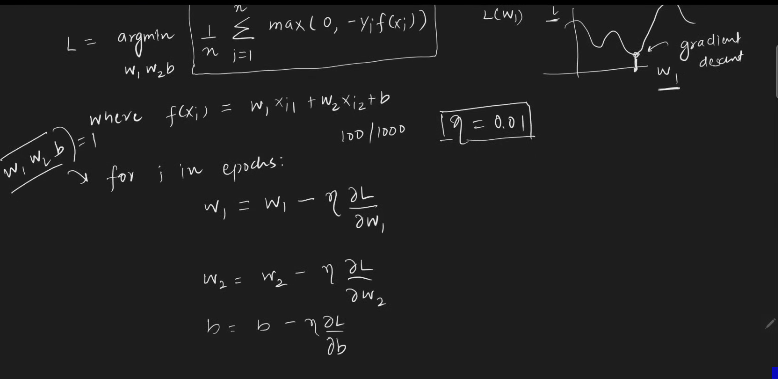 L = argmin 1/n Σ max(0, -yif(xi))
n
i=1
w1 w2 b
L(w1)
L
gradient
descent
w1
where f(xi) = w1 xi1 + w2 xi2 + b
100/1000
η = 0.01
w1 w2 b = 1
for i in epochs:
w1 = w1 - η ∂L/∂w1
w2 = w2 - η ∂L/∂w2
b = b - η ∂L/∂b